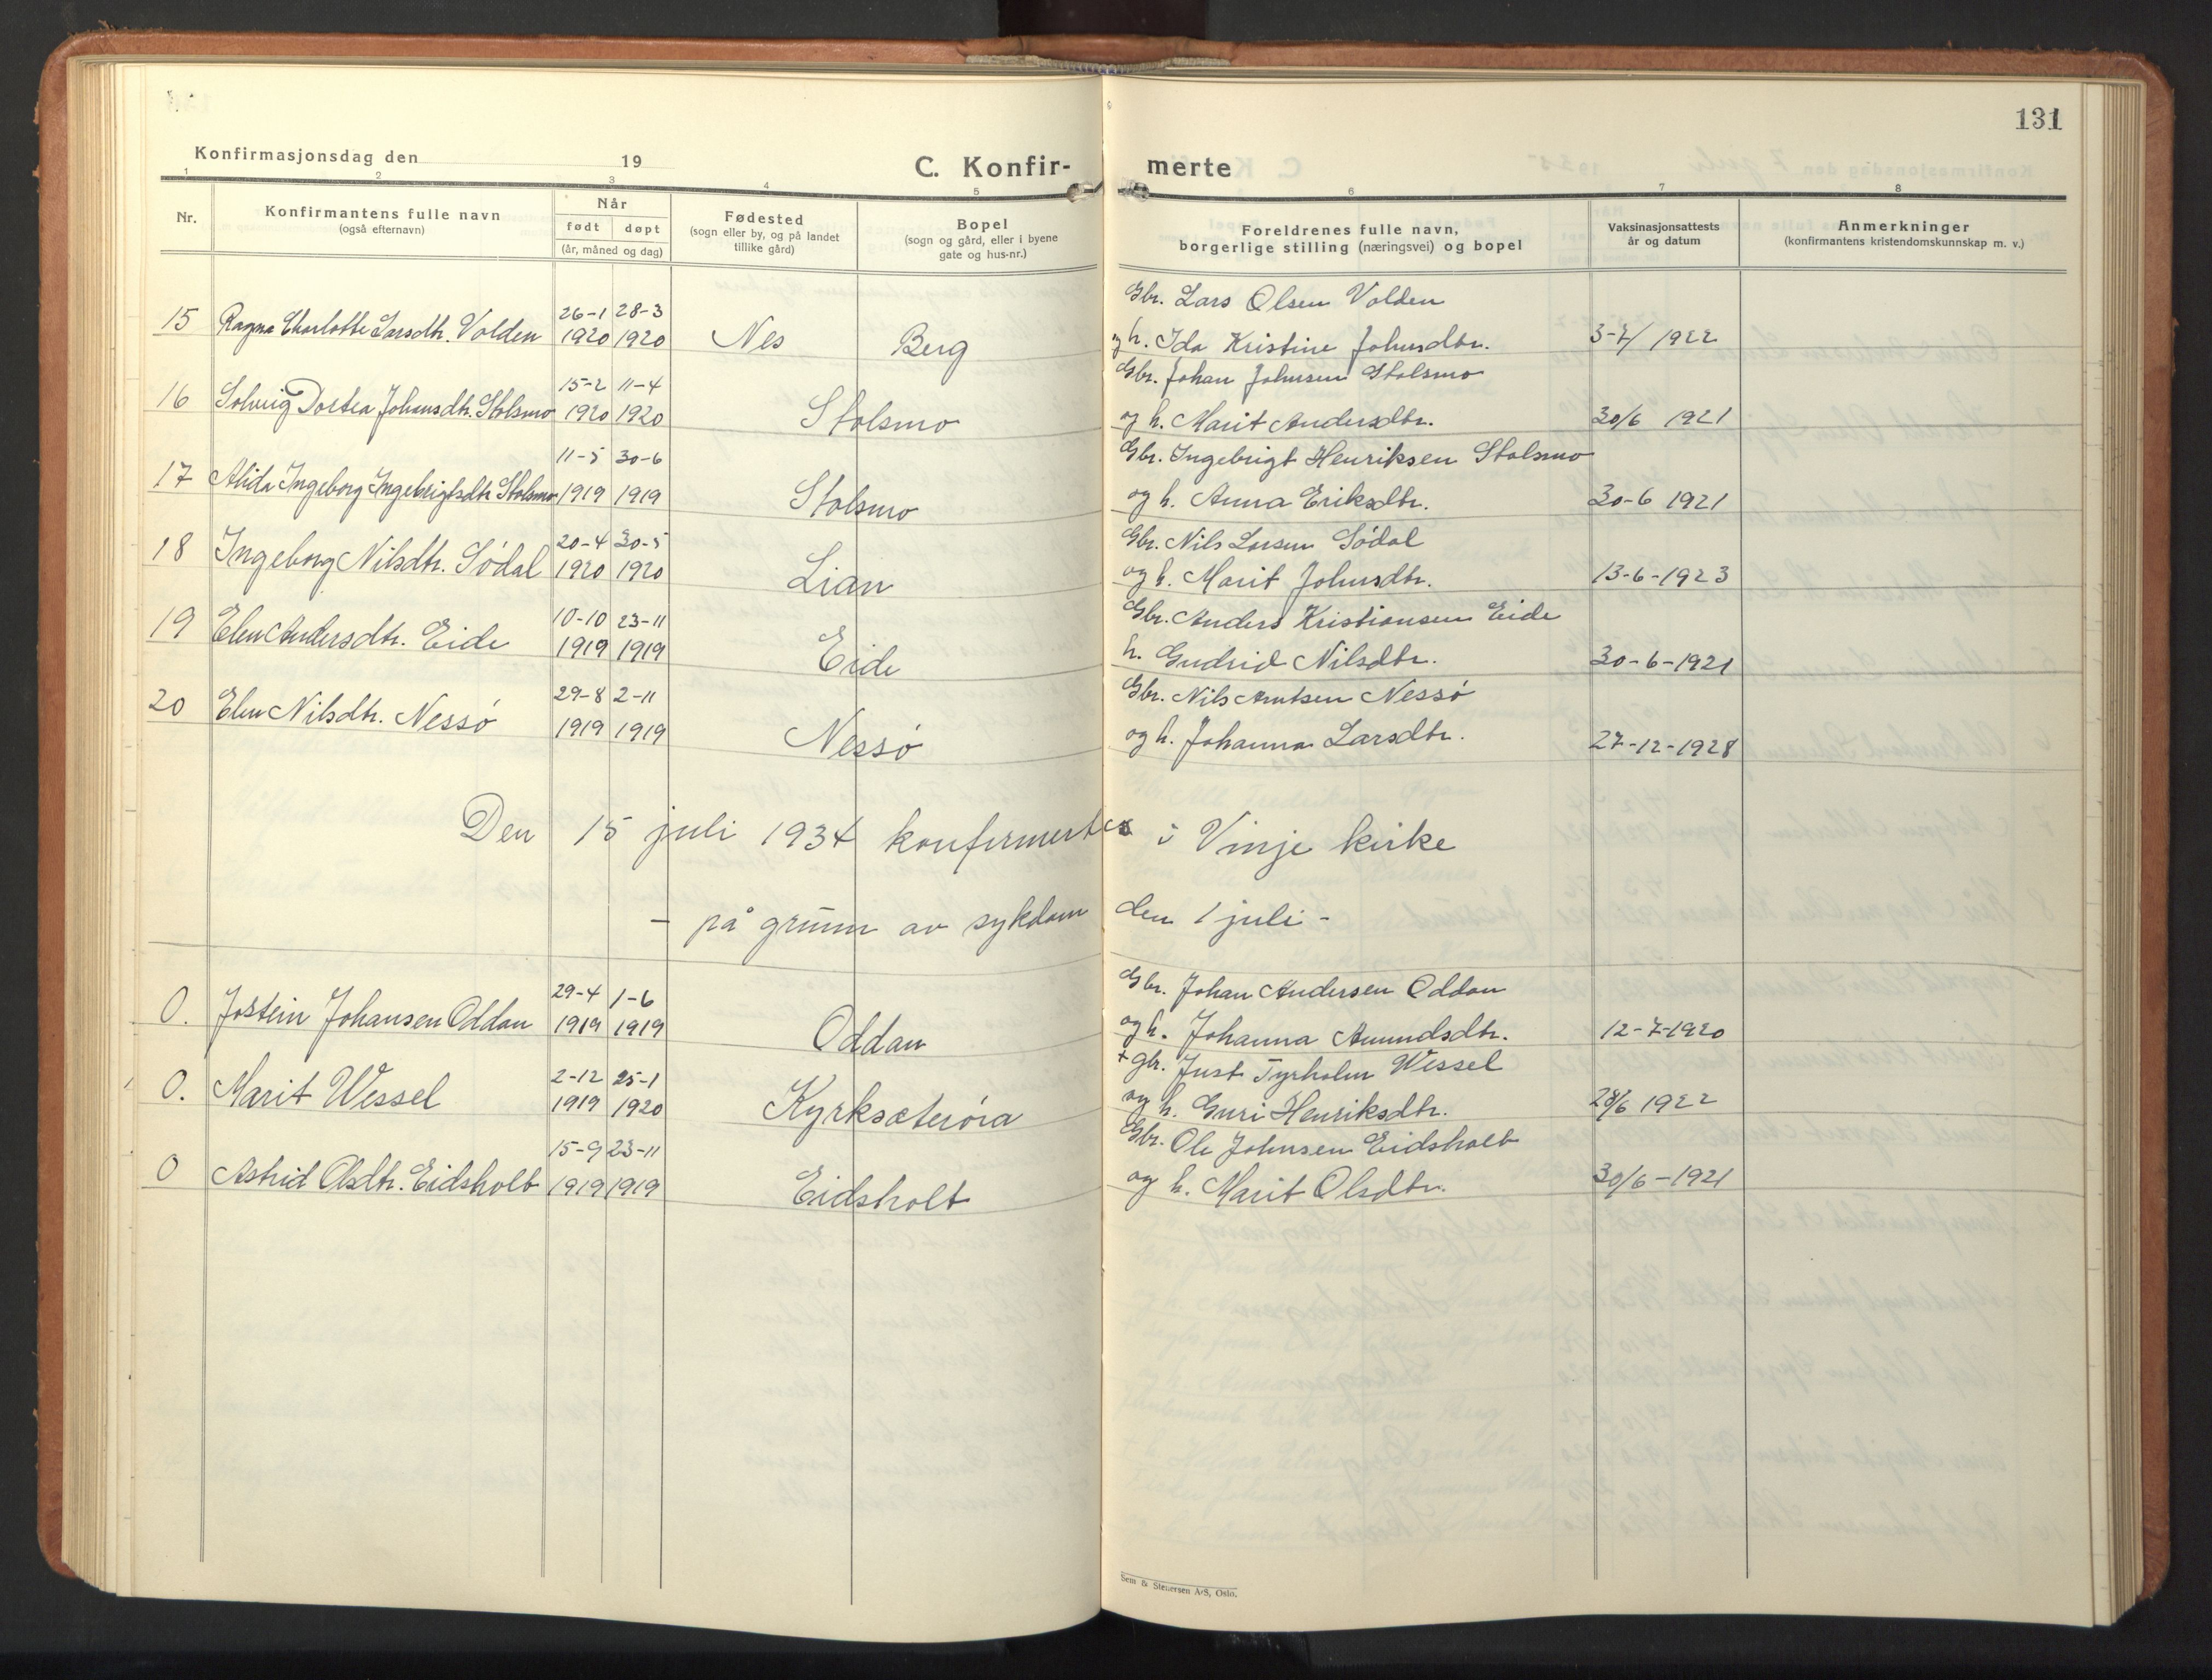 131
Konfirmasjonsdag den 19
C. Konfir- merte
1 2 3 4 5 6 7 8
Nr.
Konfirmantens fulle navn
(også efternavn)
Når
født døpt
(år, måned og dag)
Fødested
(sogn eller by, og på landet
tillike gård)
Bopel
(sogn og gård, eller i byene
gate og hus-nr.)
Foreldrenes fulle navn,
borgerlige stilling (næringsvei) og bopel
Vaksinasjonsattests
år og datum
Anmerkninger
(konfirmantens kristendomskunnskap m. v.)
26-1 28-3 Gbr. Lars Olsen Volden
15 Ragna Charlotte Larsdtr. Volden 1920 1920 Nes Berg og h. Ida Kristine Johnsdtr. 3-7/ 1922
15-2 11-4 Gbr. Johan Johnsen Stolsmo
16 Solveig Dortea Johansdtr. Stolsmo 1920 1920 Stolsmo og h. Marit Andersdtr. 30/6 1921
11-5 30-6 Gbr. Ingebrigt Henriksen Stolsmo
17 Alida Ingeborg Ingebrigtsdtr Stolsmo 1919 1919 Stolsmo og h. Anna Eriksdtr. 30-6 1921
20-4 30-5 Gbr. Nils Larsen Södal
18 Ingeborg Nilsdtr. Södal 1920 1920 Lian og h. Marit Johnsdtr. 13-6-1923
10-10 23-11 Gbr. Anders Kristiansen Eide
19 Elen Andersdtr. Eide 1919 1919 Eide h. Gudrid Nilsdtr. 30-6-1921
29-8 2-11 Gbr. Nils Arntsen Nessö
20 Elen Nilsdtr. Nessö 1919 1919 Nessö og h. Johanna Larsdtr. 27-12-1928
Den 15 juli 1934 konfirmertes i Vinje kirke
- på grunn av sykdom den 1 juli -
29-4 1-6 Gbr. Johan Andersen Oddan
0. Jostein Johansen Oddan 1919 1919 Oddan og h. Johanna Amundsdtr. 12-7-1920
2-12 25-1 + gbr. Just Tyrholm Wessel
0. Marit Wessel 1919 1920 Kyrksæteröra og h. Guri Henriksdtr. 28/6 1922
15-9 23-11 Gbr. Ole Johnsen Eidsholt
0 Astrid Olsdtr. Eidsholt 1919 1919 Eidsholt og h. Marit Olsdtr. 30/6-1921
Sem & Stenersen A/S, Oslo.